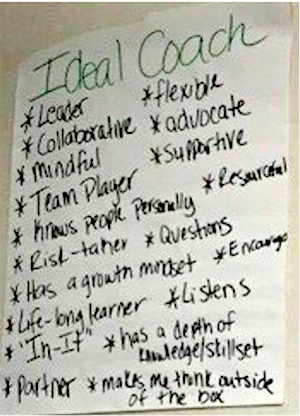 Ideal Coach
*Leader *flexible
*Collaborative *advocate
*Mindful *Supportive
*Team Player *Resourceful
*Knows people Personally
*Risk-taker *Questions
*Has a growth mindset *Encourage
*Life-long learner *Listens
*"In-It" *has a depth of
knowledge/skillset
*partner *makes me think outside
of the box